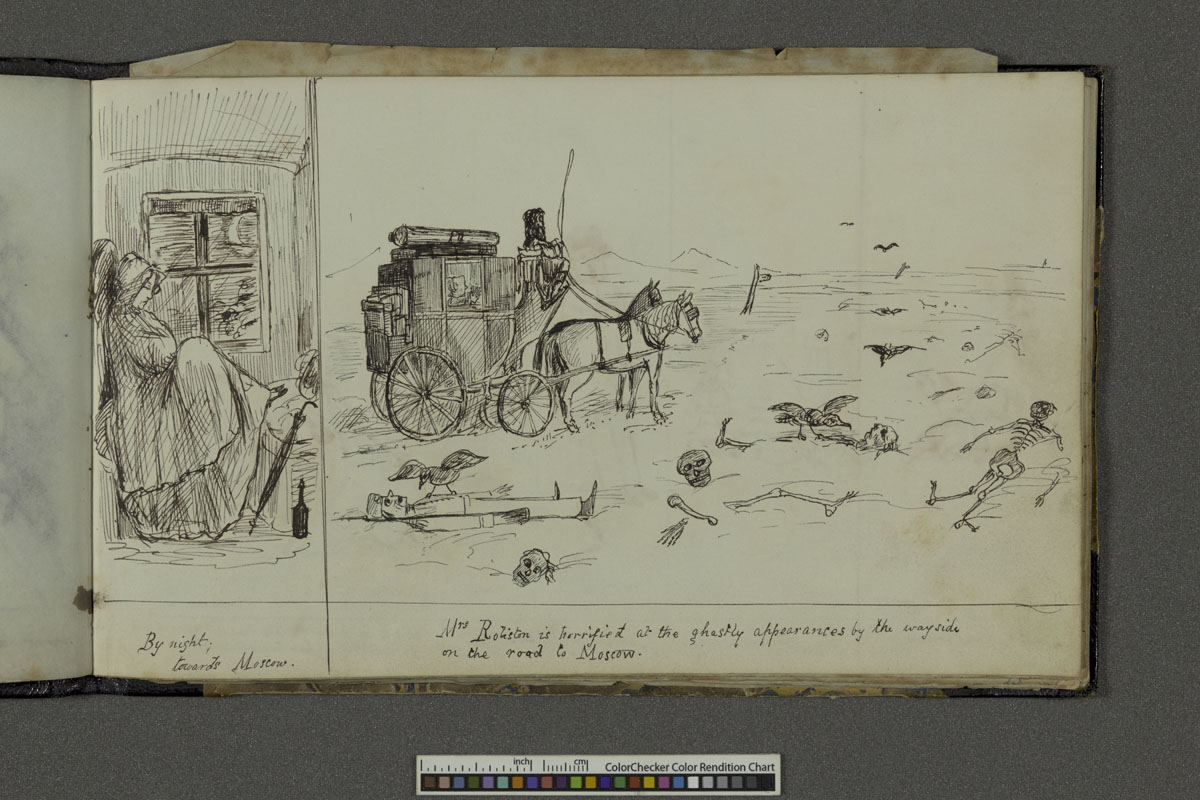 By night;
towards Moscow.
Mrs Roliston is horrified at the ghastly appearances by the wayside
on the road to Moscow.
inch
cm
ColorChecker Color Rendition Chart